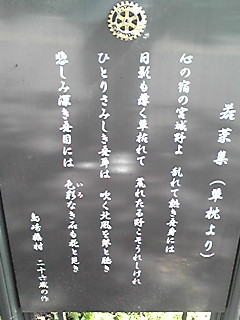 若菜集(草枕より)
心の宿の宮城野よ 乱れて熱き吾身には
日影も薄く草枯れて 荒れたる野こそうれしけれ
ひとりさみしき吾耳は 吹く北風を琴と聴き
悲しみ深き吾目には 色彩なき石も花と見き
いろ
島崎藤村 二十六歳の作